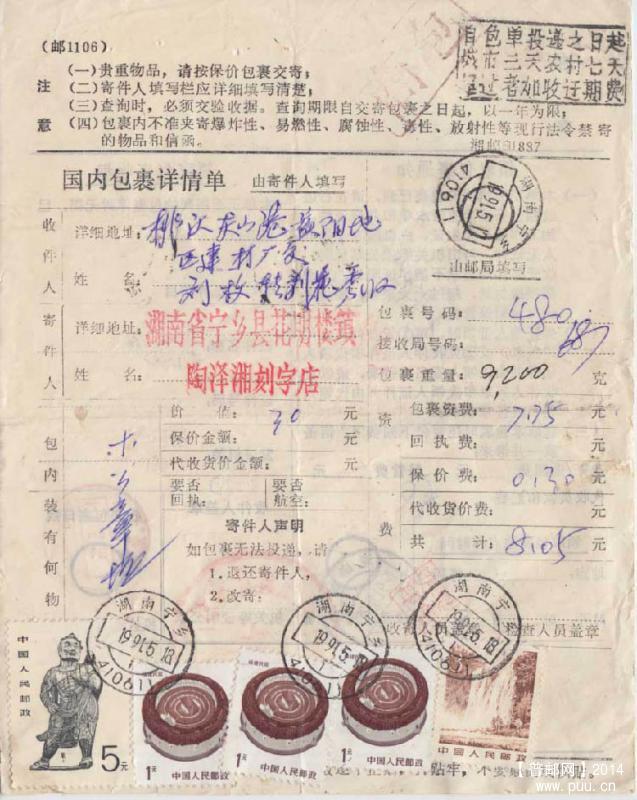 (邮1106)
自包单投递之日起
城市三天农村七天
过者加收迁期费
湘邮 81887
注意
(一)贵重物品,请按保价包裹交寄;
(二)寄件人填写栏应详细填写清楚;
(三)查询时,必须交验收据。查询期限自交寄包裹之日起,以一年为限;
(四)包裹内不准夹寄爆炸性、易燃性、腐蚀性、毒性、放射性等现行法令禁寄
的物品和信函。
国内包裹详情单
由寄件人填写
湖南宁乡
1991.5.1
410611
由邮局填写
收件人
详细地址:
姓名:
寄件人
详细地址:
湖南省宁乡县花明楼镇
姓名:
陶泽湘刻字店
包裹号码: 480
接收局号码:
包裹重量: 9,200 克
包内装有何物
价值: 30 元
保价金额: 元
代收货价金额: 元
要否回执:
要否航空:
寄件人声明
如包裹无法投递,请
1.退还寄件人,
2.改寄:
费
包裹资费: 7.75 元
回执费: 元
保价费: 0.30 元
代收货价费: 元
费
共计: 8.05 元
收寄人员盖章
检查人员盖章
湖南宁乡
1991.5.18
410611
湖南宁乡
1991.5.18
410611
湖南宁乡
1991.5.18
410611
中国人民邮政
5元
1元 中国人民邮政
1元 中国人民邮政
1元 中国人民邮政
中国人民邮政
贴牢,
【普邮网】2014
www.puu.cn